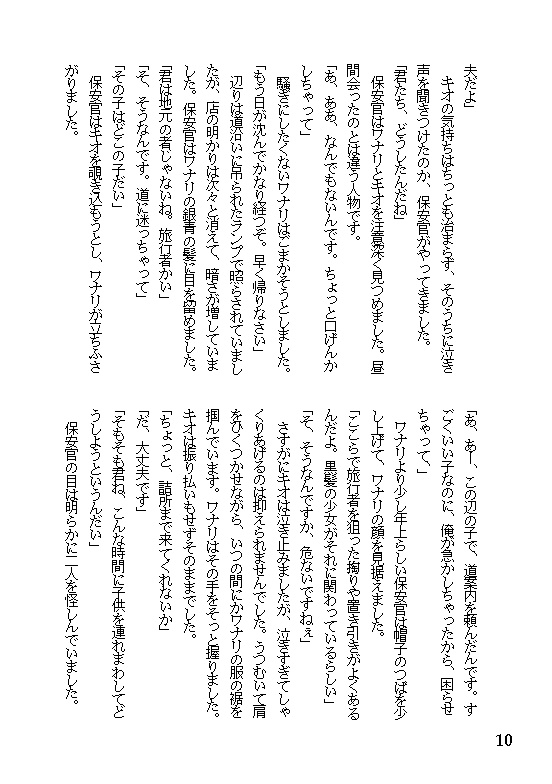 夫だよ」
　キオの気持ちはちっとも治まらず、そのうちに泣き
声を聞きつけたのか、保安官がやってきました。
「君たち、どうしたんだね」
　保安官はワナリとキオを注意深く見つめました。昼
間会ったのとは違う人物です。
「あ、ああ、なんでもないんです。ちょっと口げんか
しちゃって」
　騒ぎにしたくないワナリはごまかそうとしました。
「もう日が沈んでかなり経つぞ。早く帰りなさい」
　辺りは道沿いに吊られたランプで照らされていまし
たが、店の明かりは次々と消えて、暗さが増していま
した。保安官はワナリの銀青の髪に目を留めました。
「君は地元の者じゃないね。旅行者かい」
「そ、そうなんです。道に迷っちゃって」
「その子はどこの子だい」
　保安官はキオを覗き込もうとし、ワナリが立ちふさ
がりました。
「あ、あー、この辺の子で、道案内を頼んだんです。す
ごくいい子なのに、俺が急かしちゃったから、困らせ
ちゃって、」
　ワナリより少し年上らしい保安官は帽子のつばを少
し上げて、ワナリの顔を見据えました。
「ここらで旅行者を狙った掏りや置き引きがよくある
んだよ。黒髪の少女がそれに関わっているらしい」
「そ、そうなんですか、危ないですねぇ」
　さすがにキオは泣き止みましたが、泣きすぎてしゃ
くりあげるのは抑えられませんでした。うつむいて肩
をひくつかせながら、いつの間にかワナリの服の裾を
掴んでいます。ワナリはその手をそっと握りました。
キオは振り払いもせずそのままでした。
「ちょっと、詰所まで来てくれないか」
「だ、大丈夫です」
「そもそも君ね、こんな時間に子供を連れまわしてど
うしようというんだい」
　保安官の目は明らかに二人を怪しんでいました。
10